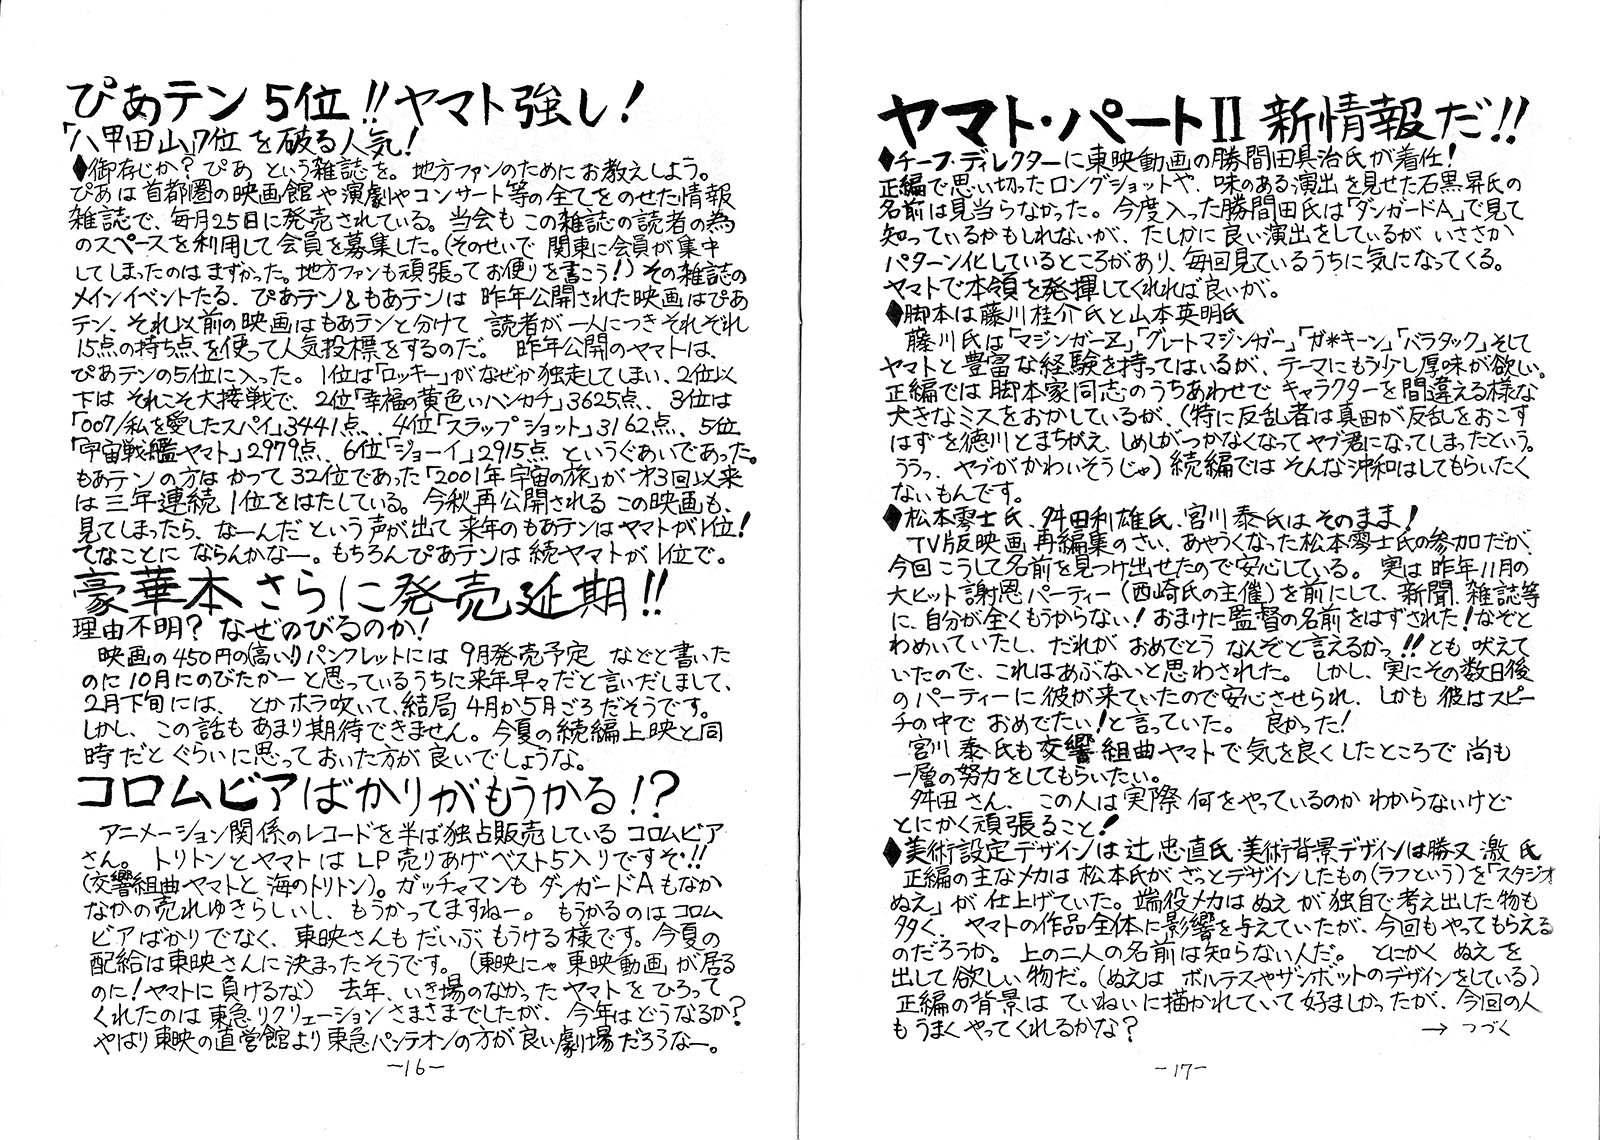 ぴあテン 5位!!ヤマト強し!
「八甲田山」7位を破る人気!
◆御存じか?ぴあ という雑誌を。地方ファンのために お教えしよう。
ぴあは首都圏の映画館や演劇やコンサート等の全てをのせた情報
雑誌で、毎月25日に発売されている。当会もこの雑誌の読者の為
のスペースを利用して会員を募集した。(そのせいで 関東に会員が集中
してしまったのはまずかった。地方ファンも頑張ってお便りを書こう!)その雑誌の
メインイベントたる、ぴあテン&もあテンは 昨年公開された映画はぴあ
テン、それ以前の映画はもあテンと分けて 読者が一人につきそれぞれ
15点の持ち点を使って人気投標をするのだ。 昨年公開のヤマトは、
ぴあテンの5位に入った。1位は「ロッキー」がなぜか独走してしまい、2位以
下は それこそ大接戦で、2位「幸福の黄色いハンカチ」3625点、3位は
「007/私を愛したスパイ」3441点、4位「スラップショット」3162点、5位
「宇宙戦艦ヤマト」2979点、6位「ジョーイ」2915点 というぐあいであった。
もあテンの方はかつて32位であった「2001年宇宙の旅」が才3回以来
は三年連続 1位をはたしている。今秋再公開される この映画も、
見てしまったら、なーんだ という声が出て 来年のもあテンはヤマトが1位!
てなことに ならんかなー。もちろんぴあテンは続ヤマトが1位で。
豪華本さらに発売延期!!
理由不明? なぜのびるのか!
映画の450円の(高い!)パンフレットには 9月発売予定 などと書いた
のに10月にのびたかーと思っているうちに来年早々だと言いだしまして、
2月下旬には、とかホラ吹いて、結局 4月か5月ごろだそうです。
しかし、この話もあまり期待できません。今夏の続編上映と同
時だとぐらいに思っておいた方が良いでしょうな。
コロムビアばかりがもうかる!?
アニメーション関係のレコードを半ば独占販売している コロムビア
さん。トリトンとヤマトは LP売りあげベスト5入りですぞ!!
(交響組曲ヤマトと海のトリトン)。ガッチャマンもダンガードAもなか
なかの売れゆきらしいし、もうかってますねー。もうかるのはコロム
ビアばかりでなく、東映さんもだいぶもうける様です。今夏の
配給は東映さんに決まったそうです。(東映にゃ東映動画が居る
のに!ヤマトに負けるな) 去年、いき場のなかったヤマトをひろって
くれたのは東急リクリェーションさまさまでしたが、今年はどうなるか?
やはり東映の直営館より東急パンテオンの方が良い劇場だろうなー。
-16-
ヤマト・パートⅡ 新情報だ!!
◆チーフ・ディレクターに東映動画の勝間田具治氏が着任!
正編で思い切ったロングショットや、味のある演出を見せた石黒昇氏の
名前は見当らなかった。今度入った勝間田氏は「ダンガードA」で見て
知っているかもしれないが、たしかに良い演出をしているが いささか
パターン化しているところがあり、毎回見ているうちに気になってくる。
ヤマトで本領を発揮してくれれば良いが。
◆脚本は藤川桂介氏と山本英明氏
藤川氏は「マジンガーZ」「グレートマジンガー」「ガ*キーン」「バラタック」そして
ヤマトと豊富な経験を持ってはいるが、テーマにもう少し厚味が欲しい。
正編では脚本家同志のうちあわせで キャラクターを間違える様な
大きなミスをおかしているが、(特に反乱者は真田が反乱をおこす
はずを徳川とまちがえ、しめしがつかなくなってヤブ君になってしまったという。
ううっ、ヤブがかわいそうじゃ)続編では そんな沖和はしてもらいたく
ないもんです。
◆松本零士氏、舛田利雄氏、宮川泰氏はそのまま!
TV版映画再編集のさい、あやうくなった松本零士氏の参加だが、
今回こうして名前を見つけ出せたので安心している。実は昨年11月の
大ヒット謝恩パーティー(西崎氏の主催)を前にして、新聞、雑誌等
に、自分が全くもうからない!おまけに監督の名前をはずされた!なぞと
わめいていたし、だれが おめでとう なんぞと言えるかっ!!とも吠えて
いたので、これはあぶないと思わされた。しかし、実にその数日後
のパーティーに彼が来ていたので安心させられ、しかも彼はスピー
チの中で おめでたい!と言っていた。 良かった!
宮川泰氏も交響組曲ヤマトで気を良くしたところで 尚も
一層の努力をしてもらいたい。
舛田さん、この人は実際何をやっているのかわからないけど
とにかく頑張ること!
◆美術設定デザインは辻忠直氏・美術背景デザインは勝又激氏
正編の主なメカは松本氏がざっとデザインしたもの(ラフという)を「スタジオ
ぬえ」が仕上げていた。端役メカはぬえが独自で考え出した物も
多く、ヤマトの作品全体に影響を与えていたが、今回もやってもらえる
のだろうか。上の二人の名前は知らない人だ。 とにかく ぬえを
出して欲しい物だ。(ぬえは ボルテスやザンボットのデザインをしている)
正編の背景は ていねいに描かれていて好ましかったが、今回の人
もうまくやってくれるかな?
→ つづく
-17-